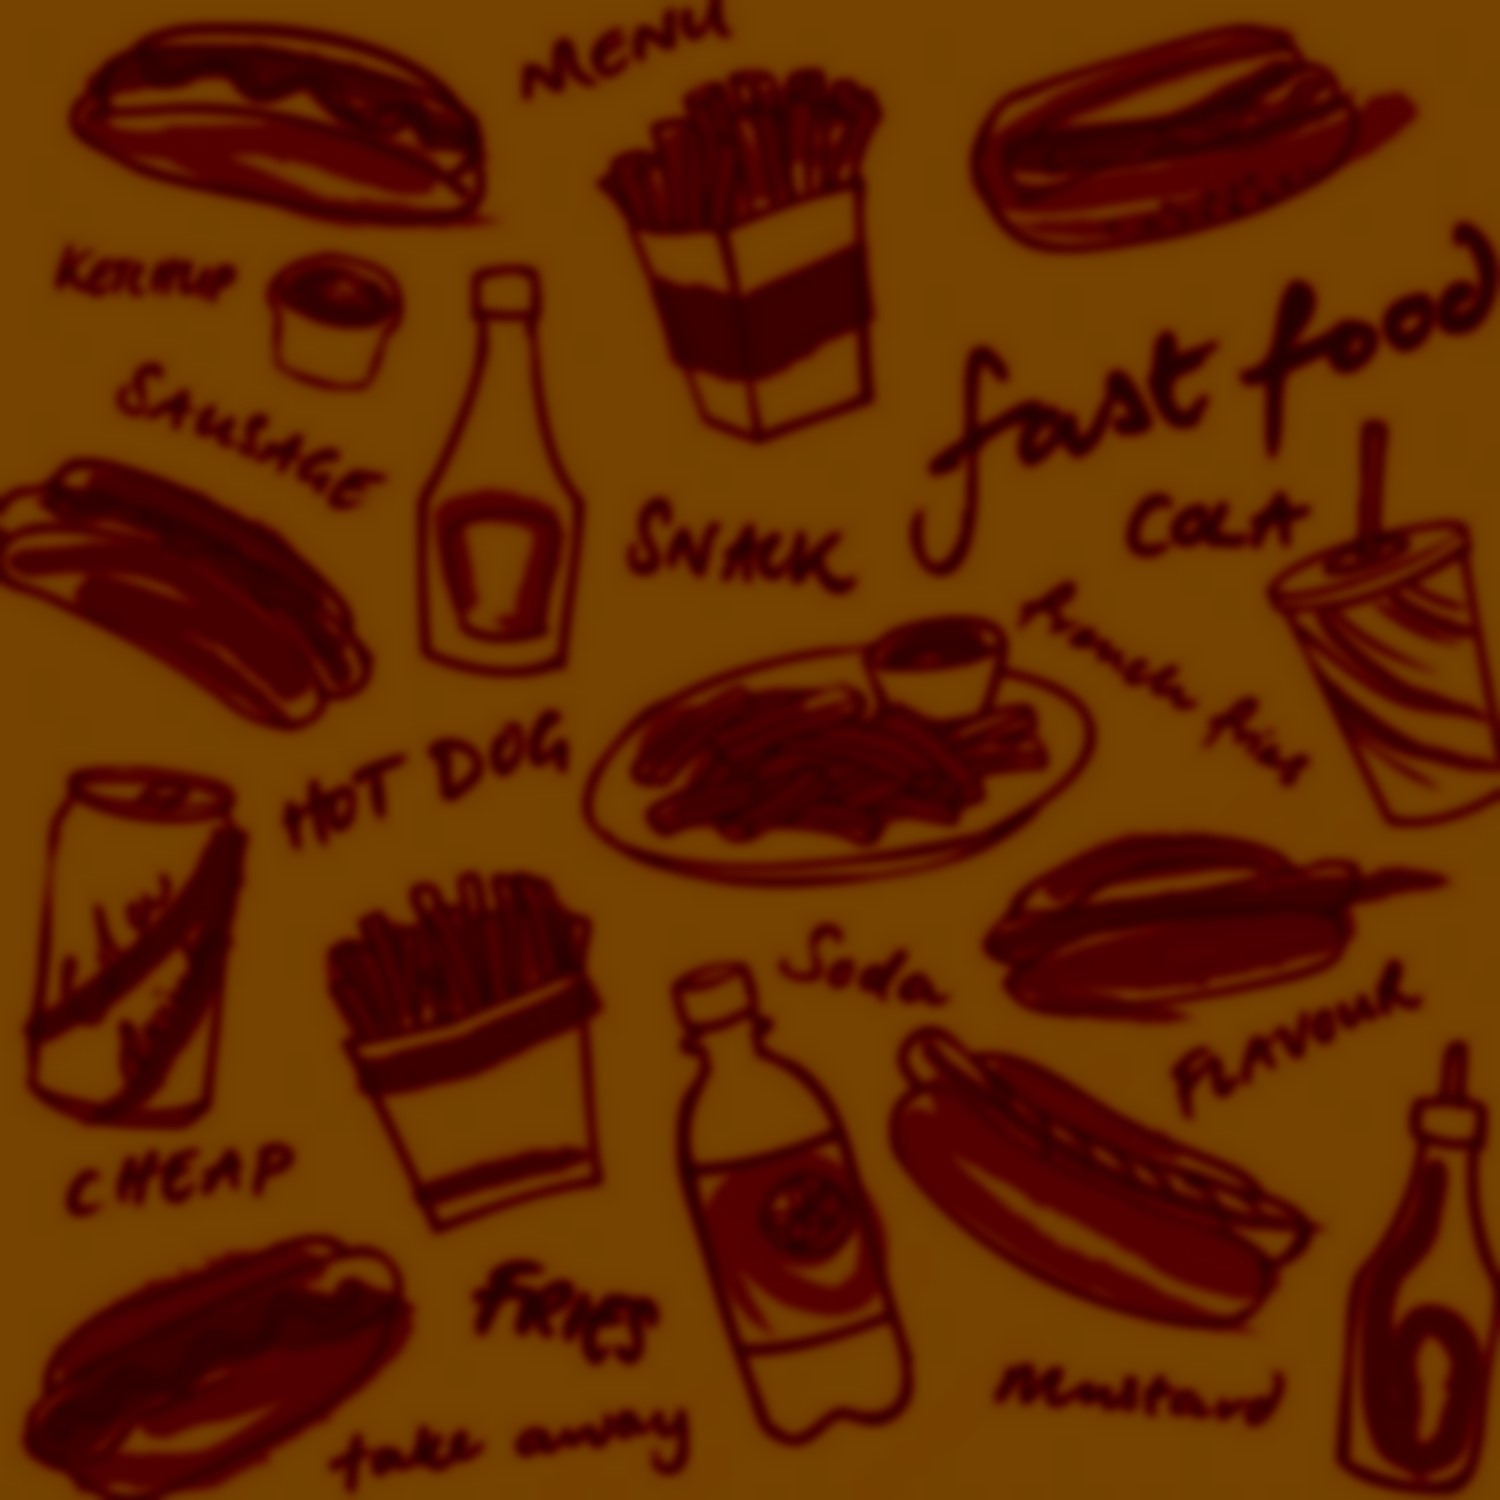 MENU
KETCHUP
fast food
SAUSAGE
COLA
SNACK
french fries
HOT DOG
Soda
FLAVOUR
CHEAP
FRIES
Mustard
take away